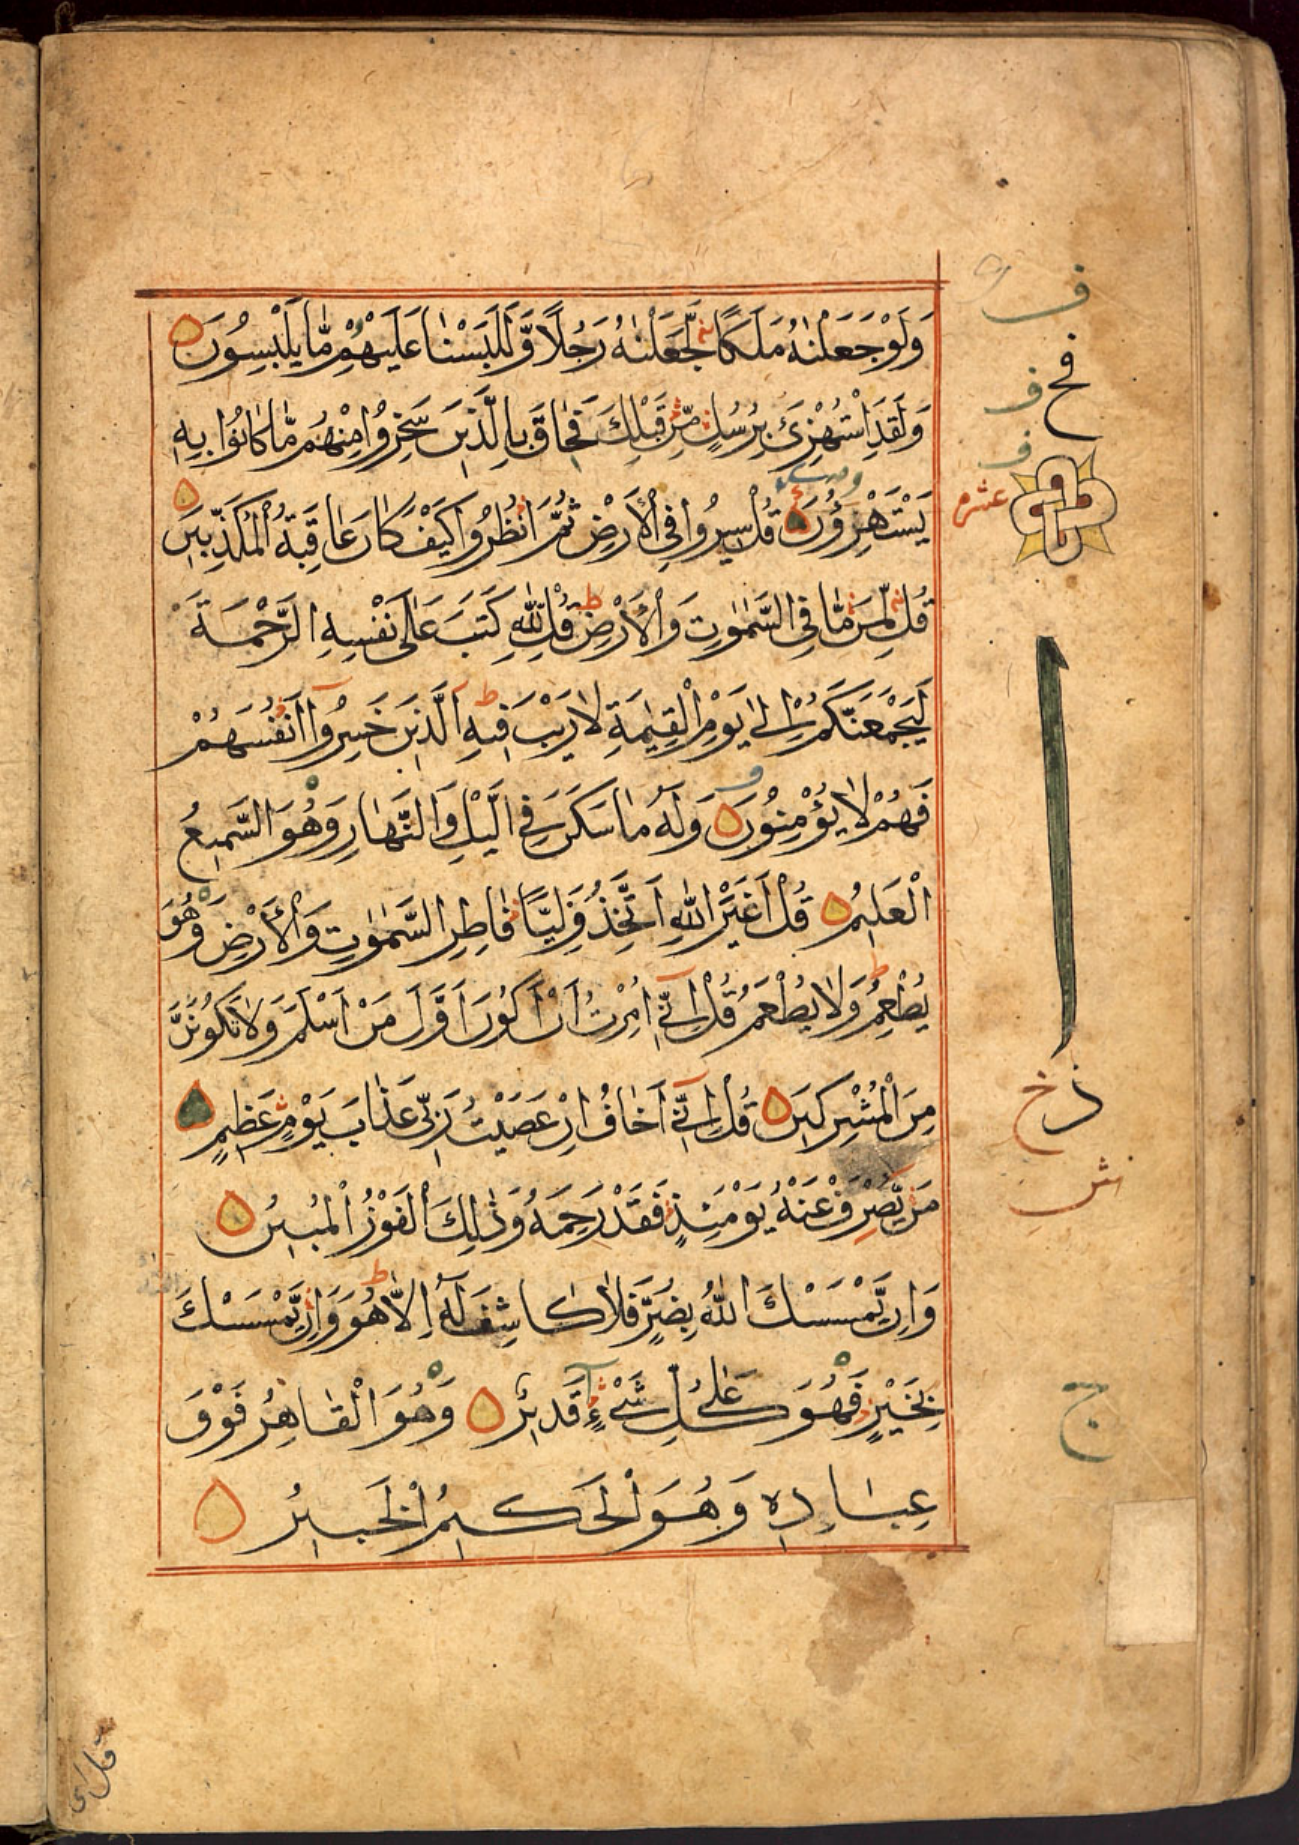 وَلَوْ جَعَلْنٰهُ مَلَكًا لَّجَعَلْنٰهُ رَجُلًا وَّلَلَبَسْنَا عَلَيْهِمْ مَّا يَلْبِسُوْنَ
وَلَقَدِ اسْتُهْزِئَ بِرُسُلٍ مِّنْ قَبْلِكَ فَحَاقَ بِالَّذِيْنَ سَخِرُوْا مِنْهُمْ مَّا كَانُوْا بِهٖ
يَسْتَهْزِءُوْنَ قُلْ سِيْرُوْا فِي الْاَرْضِ ثُمَّ انْظُرُوْا كَيْفَ كَانَ عَاقِبَةُ الْمُكَذِّبِيْنَ
عشره
قُلْ لِّمَنْ مَّا فِي السَّمٰوٰتِ وَالْاَرْضِ ط قُلْ لِلّٰهِ كَتَبَ عَلٰى نَفْسِهِ الرَّحْمَةَ
لَيَجْمَعَنَّكُمْ اِلٰى يَوْمِ الْقِيٰمَةِ لَا رَيْبَ فِيْهِ ط اَلَّذِيْنَ خَسِرُوْٓا اَنْفُسَهُمْ
فَهُمْ لَا يُؤْمِنُوْنَ وَلَهٗ مَا سَكَنَ فِي الَّيْلِ وَالنَّهَارِ وَهُوَ السَّمِيْعُ
الْعَلِيْمُ قُلْ اَغَيْرَ اللّٰهِ اَتَّخِذُ وَلِيًّا فَاطِرِ السَّمٰوٰتِ وَالْاَرْضِ وَهُوَ
يُطْعِمُ وَلَا يُطْعَمُ ط قُلْ اِنِّيْٓ اُمِرْتُ اَنْ اَكُوْنَ اَوَّلَ مَنْ اَسْلَمَ وَلَا تَكُوْنَنَّ
مِنَ الْمُشْرِكِيْنَ قُلْ اِنِّيْٓ اَخَافُ اِنْ عَصَيْتُ رَبِّيْ عَذَابَ يَوْمٍ عَظِيْمٍ
مَنْ يُّصْرَفْ عَنْهُ يَوْمَئِذٍ فَقَدْ رَحِمَهٗ وَذٰلِكَ الْفَوْزُ الْمُبِيْنُ
وَاِنْ يَّمْسَسْكَ اللّٰهُ بِضُرٍّ فَلَا كَاشِفَ لَهٗٓ اِلَّا هُوَ ط وَاِنْ يَّمْسَسْكَ
بِخَيْرٍ فَهُوَ عَلٰى كُلِّ شَيْءٍ قَدِيْرٌ وَهُوَ الْقَاهِرُ فَوْقَ
عِبَادِهٖ وَهُوَ الْحَكِيْمُ الْخَبِيْرُ